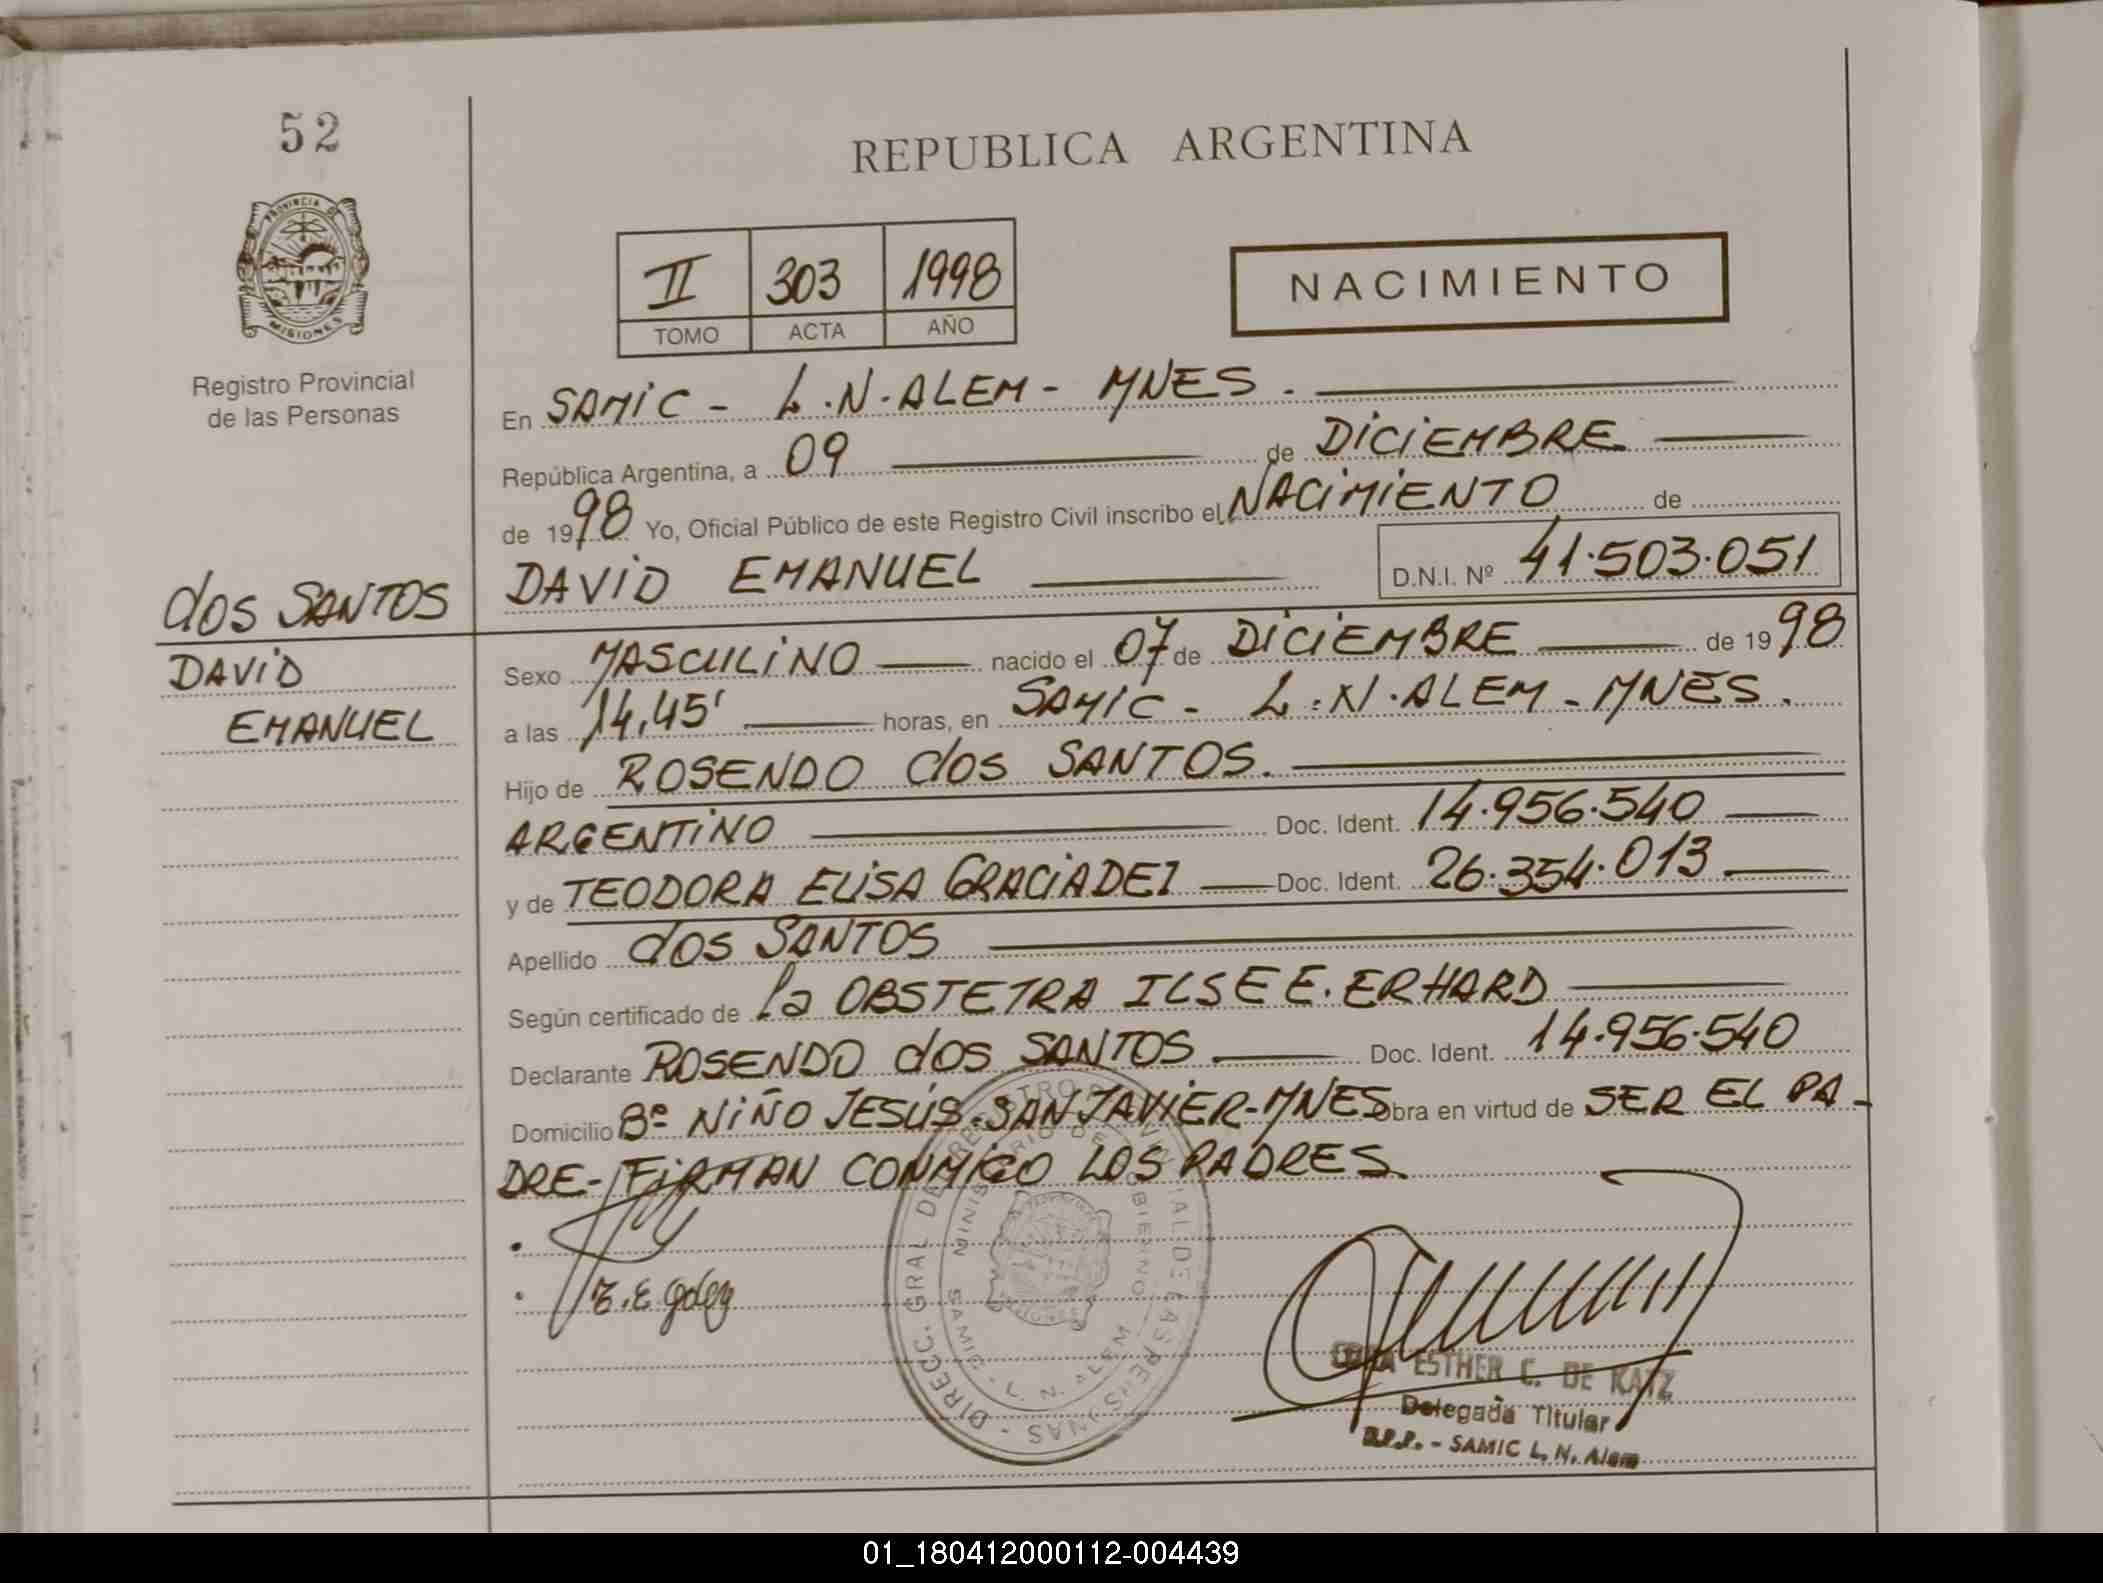 52
REPUBLICA ARGENTINA
PROVINCIA DE
MISIONES
Registro Provincial
de las Personas
II 303 1998
TOMO ACTA AÑO
NACIMIENTO
En SAMIC - L.N.ALEM - MNES.
República Argentina, a 09 de DICIEMBRE
de 1998 Yo, Oficial Público de este Registro Civil inscribo el NACIMIENTO de
DAVID EMANUEL D.N.I. Nº 41.503.051
dos SANTOS
DAVID
EMANUEL
Sexo MASCULINO nacido el 07 de DICIEMBRE de 1998
a las 14,45' horas, en SAMIC - L.N.ALEM - MNES.
Hijo de ROSENDO dos SANTOS.
ARGENTINO Doc. Ident. 14.956.540
y de TEODORA ELISA GRACIADEI Doc. Ident. 26.354.013
Apellido dos SANTOS
Según certificado de la OBSTETRA ILSE E. ERHARD
Declarante ROSENDO dos SANTOS Doc. Ident. 14.956.540
Domicilio Bº NIÑO JESÚS - SAN JAVIER - MNES Obra en virtud de SER EL PA-
DRE - FIRMAN CONMIGO LOS PADRES.
DIRECC. GRAL DE REGISTRO PROVINCIAL DE LAS PERSONAS
MINISTERIO DE GOBIERNO
SAMIC - L. N. ALEM
ESTHER C. DE KATZ
Delegada Titular
R.P.P. - SAMIC L. N. Alem
01_180412000112-004439